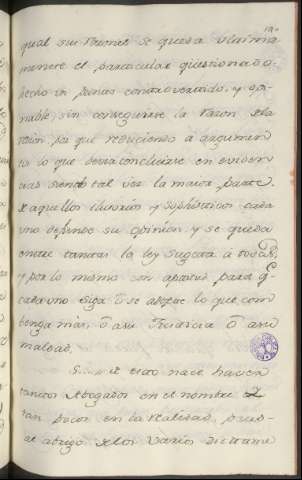 qual sus terminos se queda
mente el particular questionado
hecho un controvertido, y opi-
nable, sin conseguirse la razon de la
razon por que reduciendo à argumen
to lo que devia concluirse en eviden
cias siendo tal vez la maior parte
de aquellos ilusorios y sophisticos cada
uno defiende su opinion, y se queda
entre tantas la ley sugeta à todas,
y por lo mismo con para q.e
cada uno siga ò se adopte lo que com
benga mas, ò à su ò à su
maldad.
de esto nace haver
tantos Abogados en el nombre
tan pocos en la realidad, pues
al abrigo de los varios dictame